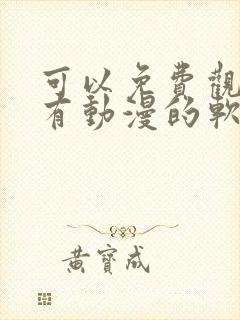 可以免費觀
有動漫的軟
黃寶成